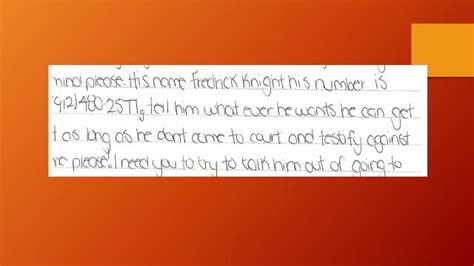 mind please. His name Fredrick Knight his number is
(912) 480-2577, tell him what ever he wants he can get
t as long as he dont come to court and testify against
me please! I need you to try to talk him out of going to